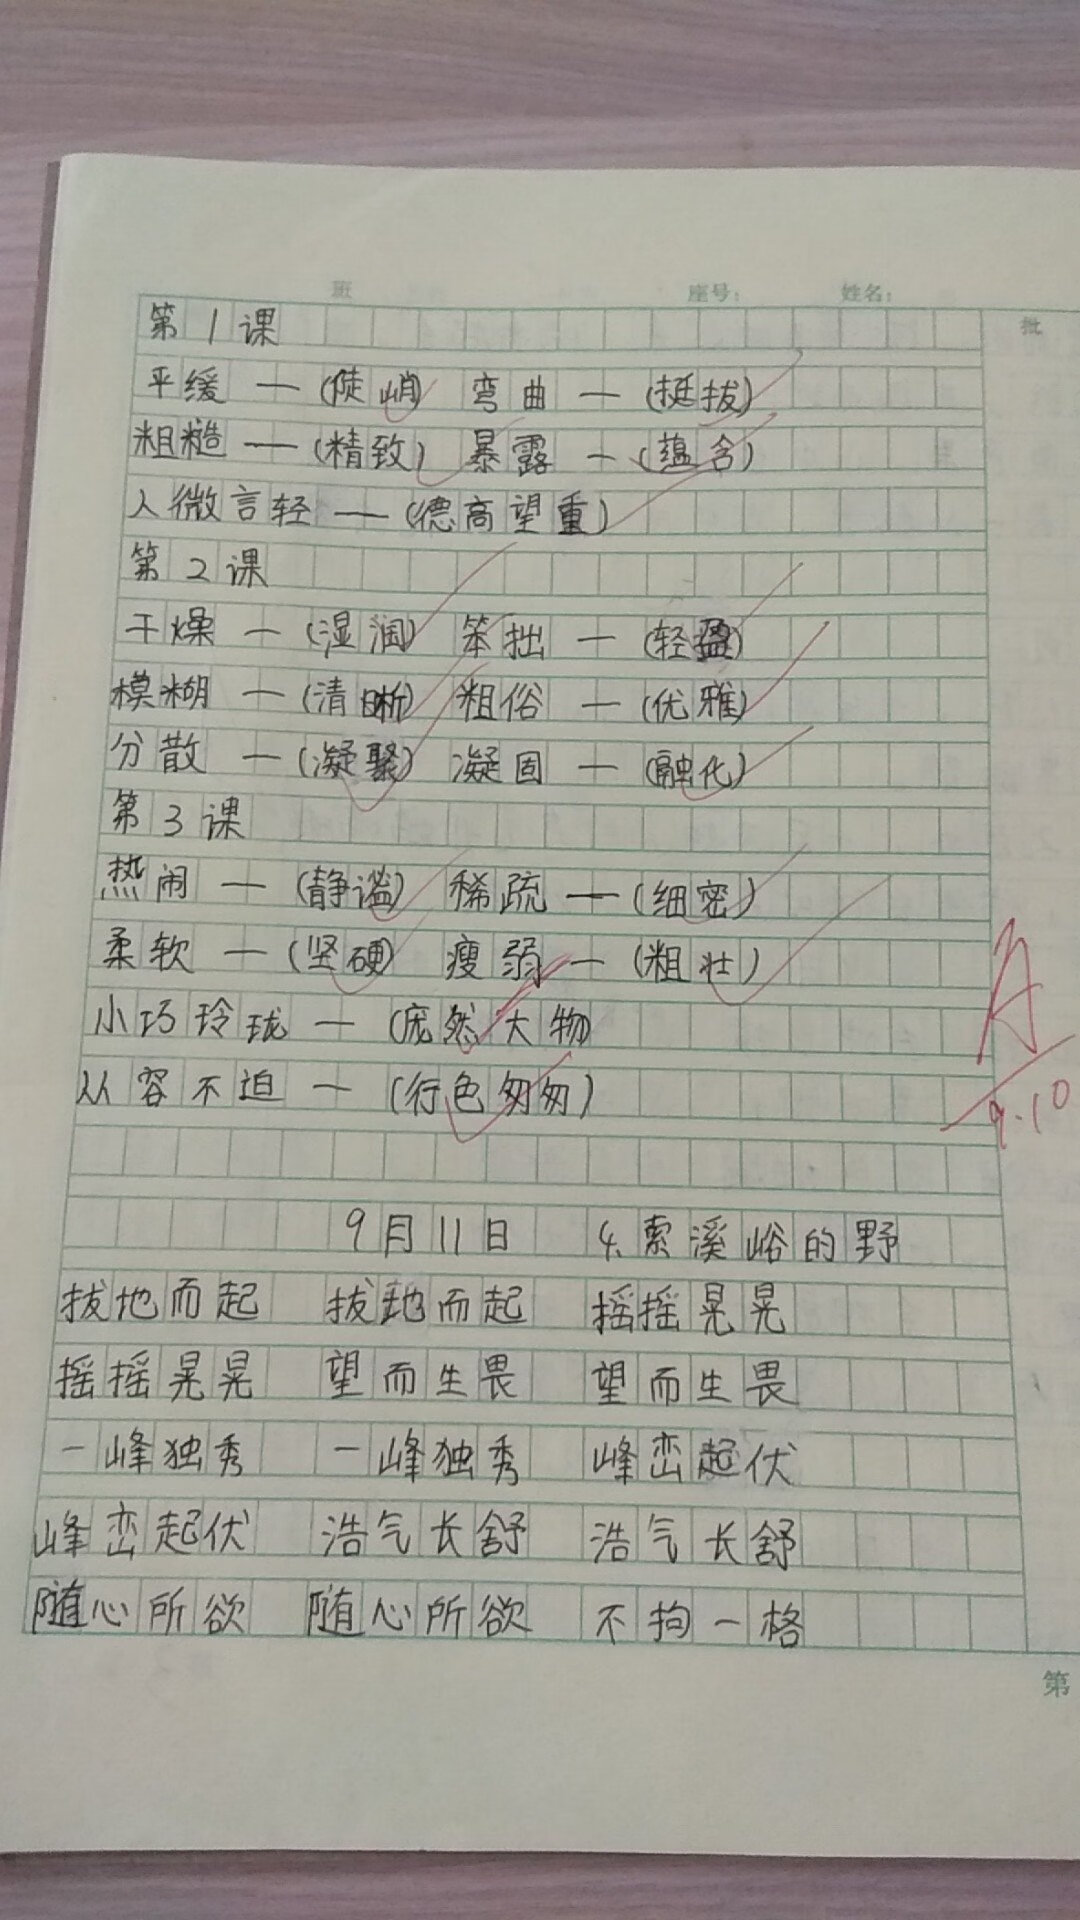 班 座号: 姓名:
批
第1课
平缓—(陡峭) 弯曲—(挺拔)
粗糙—(精致) 暴露—(蕴含)
人微言轻—(德高望重)
第2课
干燥—(湿润) 笨拙—(轻盈)
模糊—(清晰) 粗俗—(优雅)
分散—(凝聚) 凝固—(融化)
第3课
热闹—(静谧) 稀疏—(细密)
柔软—(坚硬) 瘦弱—(粗壮)
小巧玲珑—(庞然大物)
从容不迫—(行色匆匆)
A
9.10
9月11日 4.索溪峪的野
拔地而起 拔地而起 摇摇晃晃
摇摇晃晃 望而生畏 望而生畏
一峰独秀 一峰独秀 峰峦起伏
峰峦起伏 浩气长舒 浩气长舒
随心所欲 随心所欲 不拘一格
第